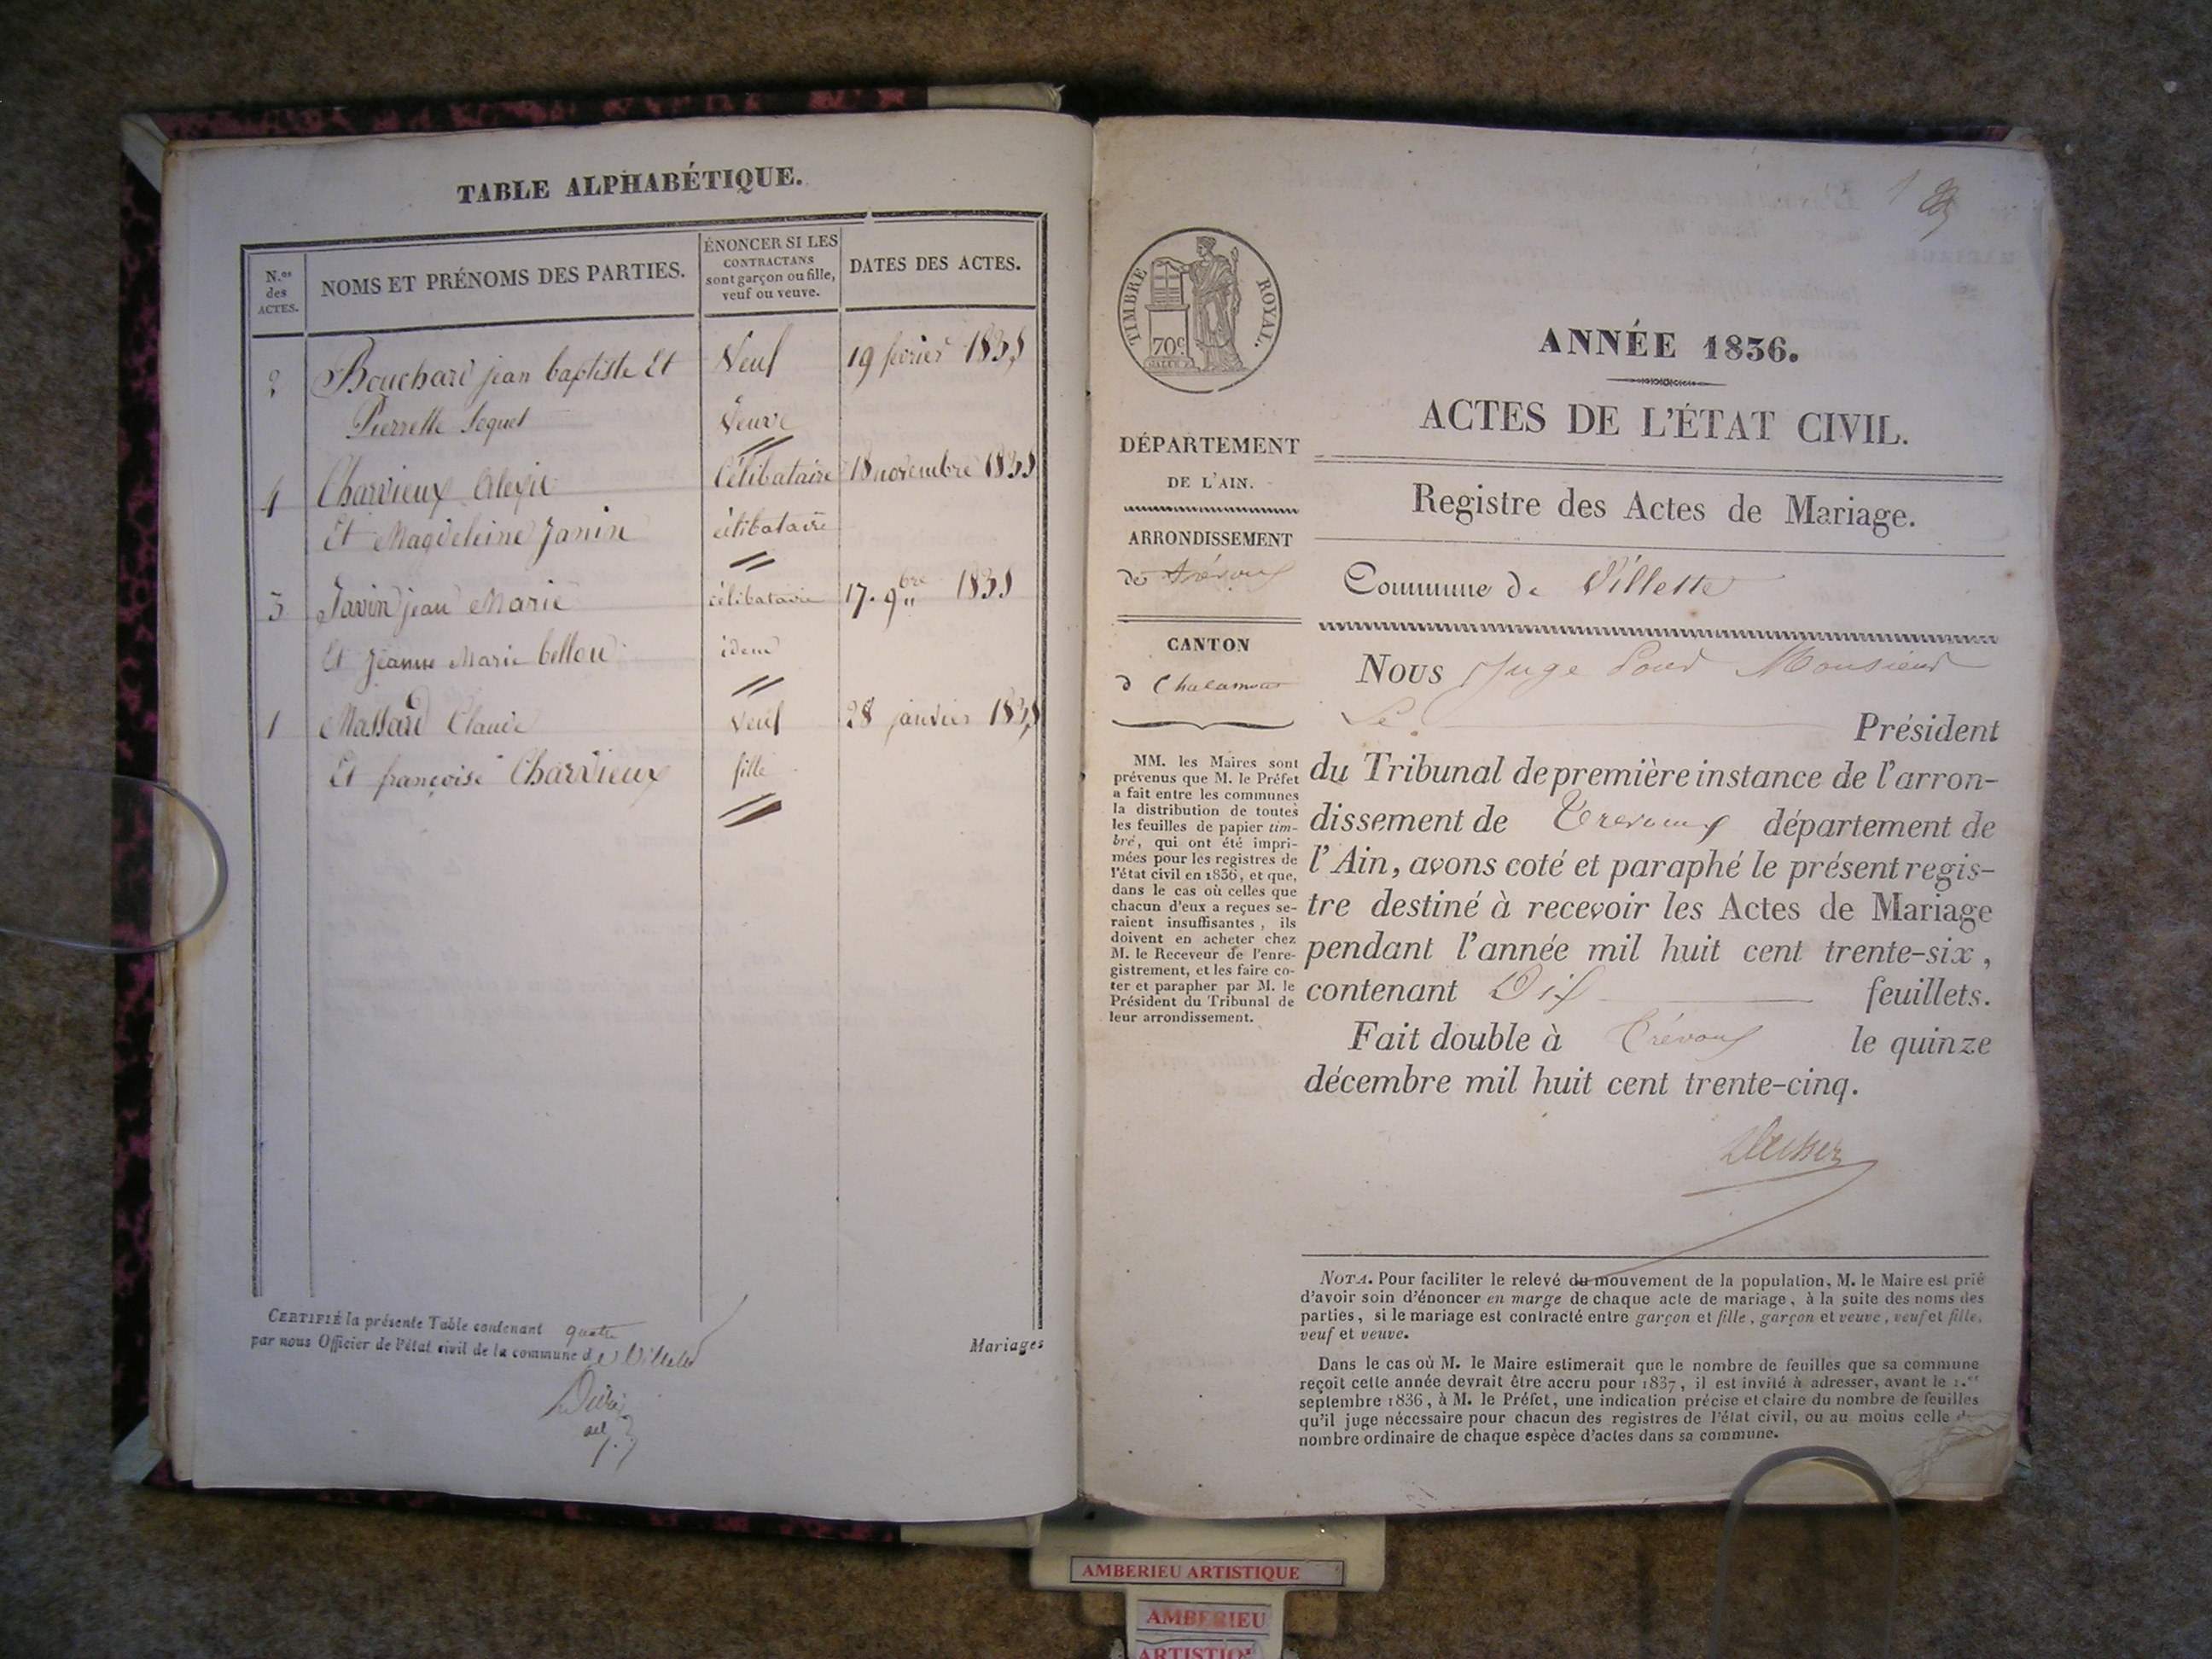 TABLE ALPHABÉTIQUE.
N.os des ACTES.
NOMS ET PRÉNOMS DES PARTIES.
ÉNONCER SI LES
CONTRACTANS
sont garçon ou fille,
veuf ou veuve.
DATES DES ACTES.
2 Bouchard jean baptiste Et Veuf 19 février 1835
Pierrette Veuve
4 Charvieux Alexis Célibataire 18 novembre 1835
Et Magdeleine Janin célibataire
3 Javin jean Marie célibataire 17. 9bre 1835
Et Jeanne Marie bellou idem
1 Massard Claude Veuf 28 janvier 1835
Et françoise Charvieux fille
CERTIFIÉ la présente Table contenant quatre
par nous Officier de l'état civil de la commune de Villette
Mariages
1
TIMBRE ROYAL.
70c
DÉPARTEMENT
DE L'AIN.
ARRONDISSEMENT
de Trévoux
CANTON
d Chalamont
MM. les Maires sont
prévenus que M. le Préfet
a fait entre les communes
la distribution de toutes
les feuilles de papier tim-
bré, qui ont été impri-
mées pour les registres de
l'état civil en 1836, et que,
dans le cas où celles que
chacun d'eux a reçues se-
raient insuffisantes, ils
doivent en acheter chez
M. le Receveur de l'enre-
gistrement, et les faire co-
ter et parapher par M. le
Président du Tribunal de
leur arrondissement.
ANNÉE 1836.
ACTES DE L'ÉTAT CIVIL.
Registre des Actes de Mariage.
Commune de Villette
Nous Juge Pour Monsieur
Le Président
du Tribunal de première instance de l'arron-
dissement de Trevoux département de
l'Ain, avons coté et paraphé le présent regis-
tre destiné à recevoir les Actes de Mariage
pendant l'année mil huit cent trente-six,
contenant Dix feuillets.
Fait double à Trévoux le quinze
décembre mil huit cent trente-cinq.
NOTA. Pour faciliter le relevé du mouvement de la population, M. le Maire est prié
d'avoir soin d'énoncer en marge de chaque acte de mariage, à la suite des noms des
parties, si le mariage est contracté entre garçon et fille, garçon et veuve, veuf et fille,
veuf et veuve.
Dans le cas où M. le Maire estimerait que le nombre de feuilles que sa commune
reçoit cette année devrait être accru pour 1837, il est invité à adresser, avant le 1.er
septembre 1836, à M. le Préfet, une indication précise et claire du nombre de feuilles
qu'il juge nécessaire pour chacun des registres de l'état civil, ou au moins celle du
nombre ordinaire de chaque espèce d'actes dans sa commune.
AMBERIEU ARTISTIQUE
AMBERIEU
ARTISTIQ